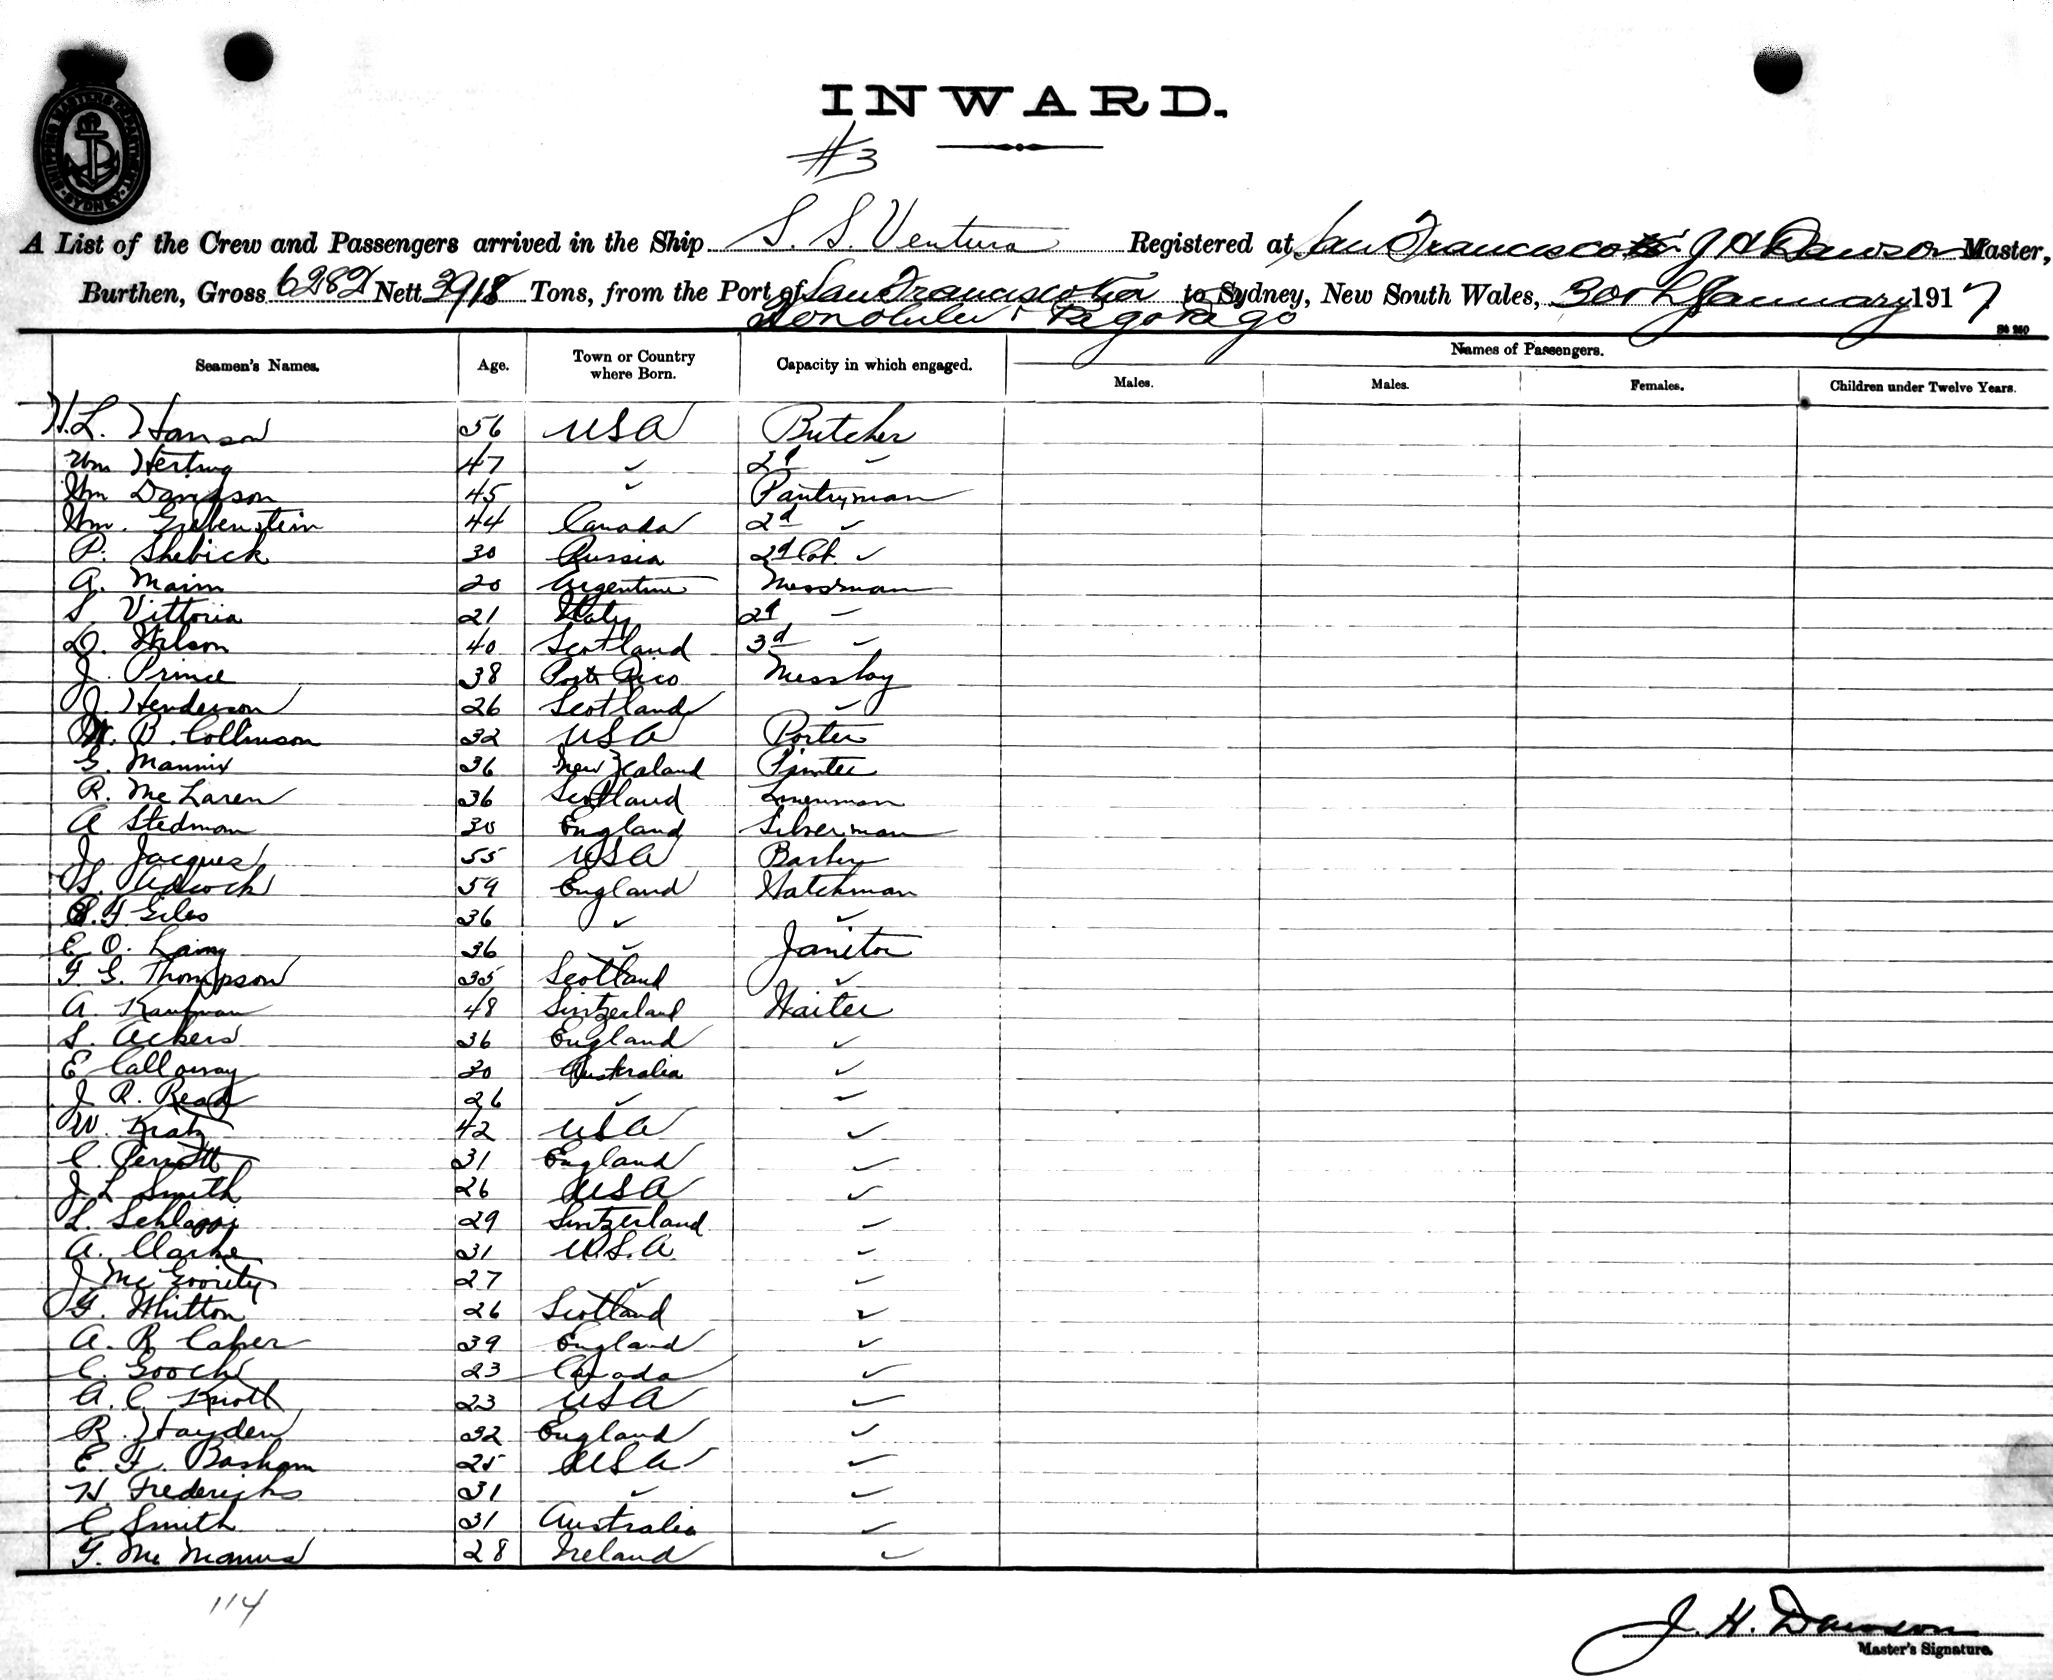 SHIPPING MASTERS DEPARTMENT SYDNEY
INWARD.
#3
A List of the Crew and Passengers arrived in the Ship S. S. Ventura Registered at San Francisco J H Dawson Master,
Burthen, Gross 6282 Nett 3918 Tons, from the Port of San Francisco via to Sydney, New South Wales, 30th January 1917
Honolulu & Pago Pago
Seamen's Names. Age. Town or Country where Born. Capacity in which engaged. Names of Passengers.
Males. Males. Females. Children under Twelve Years.
H. L. Hanson 56 USA Butcher
Wm Hertwig 47 ✓ 2d ✓
Wm Davidson 45 ✓ Pantryman
Wm. Grebenstein 44 Canada 2d ✓
P. Shebick 30 Russia 2d Cab. ✓
A. Maim 20 Argentine Messman
S. Vittoria 21 Italy 2d
D. Wilson 40 Scotland 3d ✓
J. Prince 38 Porto Rico Messboy
J. Henderson 26 Scotland ✓
W. B. Collinson 32 USA Porter
G. Mannix 36 New Zealand Printer
R. McLaren 36 Scotland Linenman
A Stedman 30 England Silverman
J. Jacques 55 USA Barber
S. Adcock 59 England Watchman
F Giles 36 ✓ ✓
E O. Laing 36 ✓ Janitor
F. G. Thompson 35 Scotland ✓
A. Kaufman 48 Switzerland Waiter
S. Ackers 36 England ✓
E Calloway 30 Australia ✓
J R. Read 26 ✓ ✓
W. Kratz 42 USA ✓
C. Perrott 31 England ✓
J L Smith 26 USA ✓
L. Schlappi 29 Switzerland ✓
A. Clarke 31 U.S.A ✓
J McGoorty 27 ✓ ✓
G. Whitton 26 Scotland ✓
A. R Caker 39 England ✓
C. Gooch 23 Canada ✓
A. C. Knott 23 USA ✓
R. Hayden 32 England ✓
E. F. Basham 25 USA ✓
H. Frederichs 31 ✓ ✓
C Smith 31 Australia ✓
G. McManus 28 Ireland ✓
114
J. H. Dawson
Master's Signature.